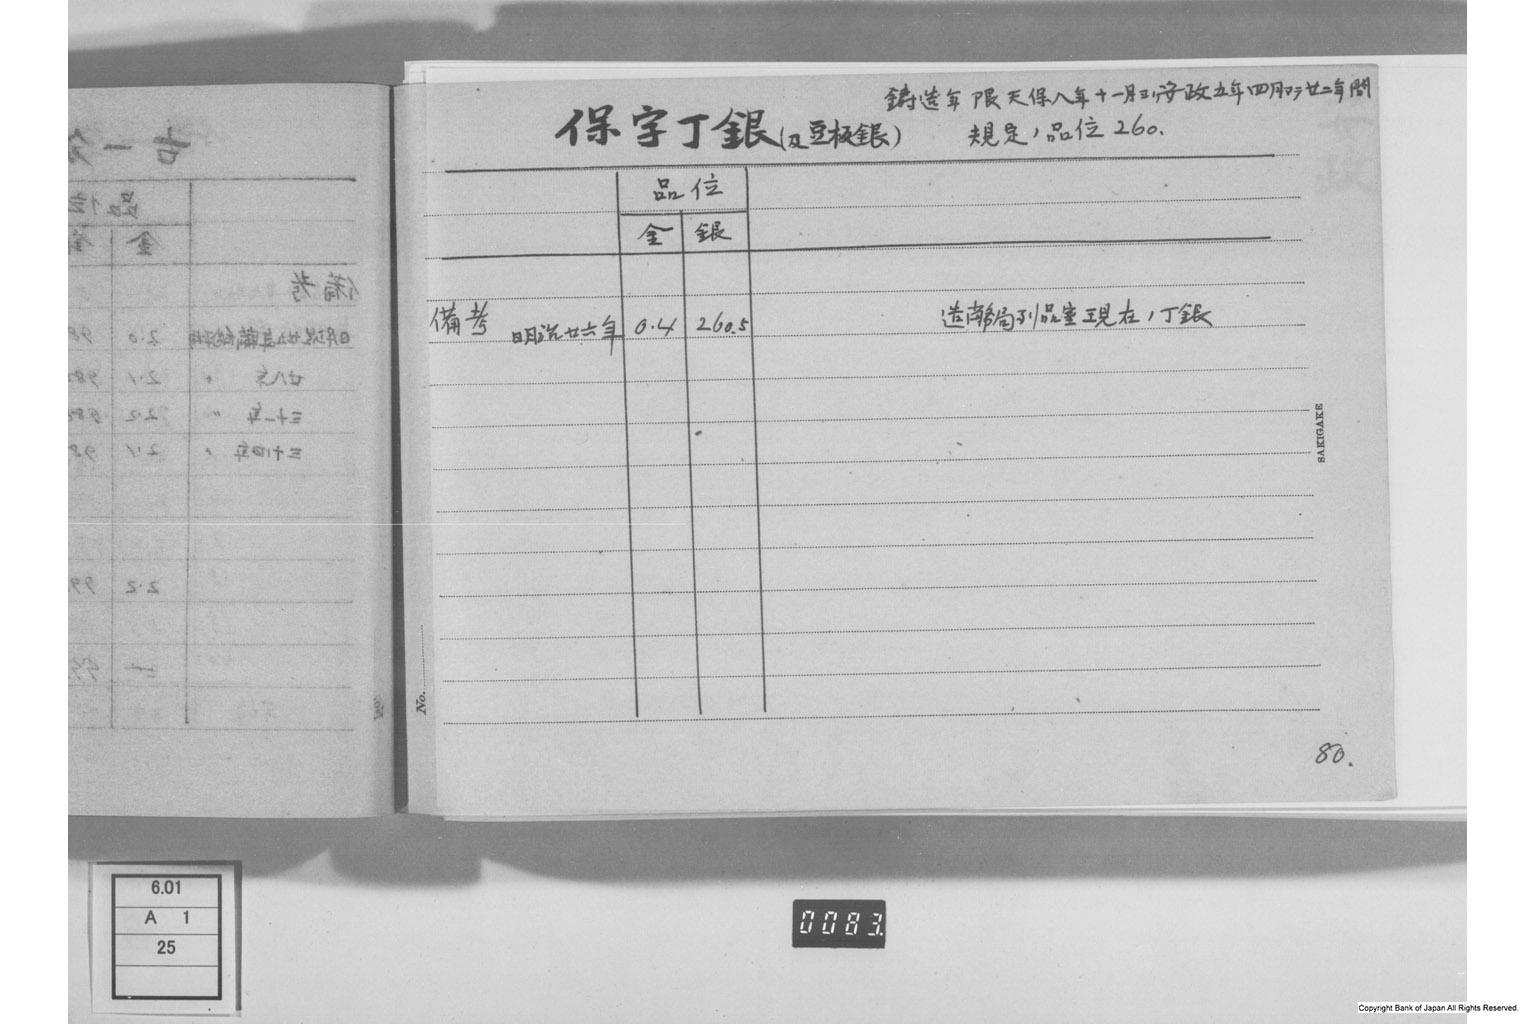 鋳造年限 天保八年十一月ヨリ安政五年四月マデ廿二年間
保字丁銀(及豆板銀)
規定ノ品位 260.
品位
金 銀
備考 明治廿六年 0.4 260.5 造幣局列品室現在ノ丁銀
SAKIGAKE
No.
80.
古一分
品位
金
備考
2.0
廿八年 〃 2.1
三十一年 〃 2.2
三十四年 〃 2.1
2.2
No.
6.01
A 1
25
0083
Copyright Bank of Japan All Rights Reserved.